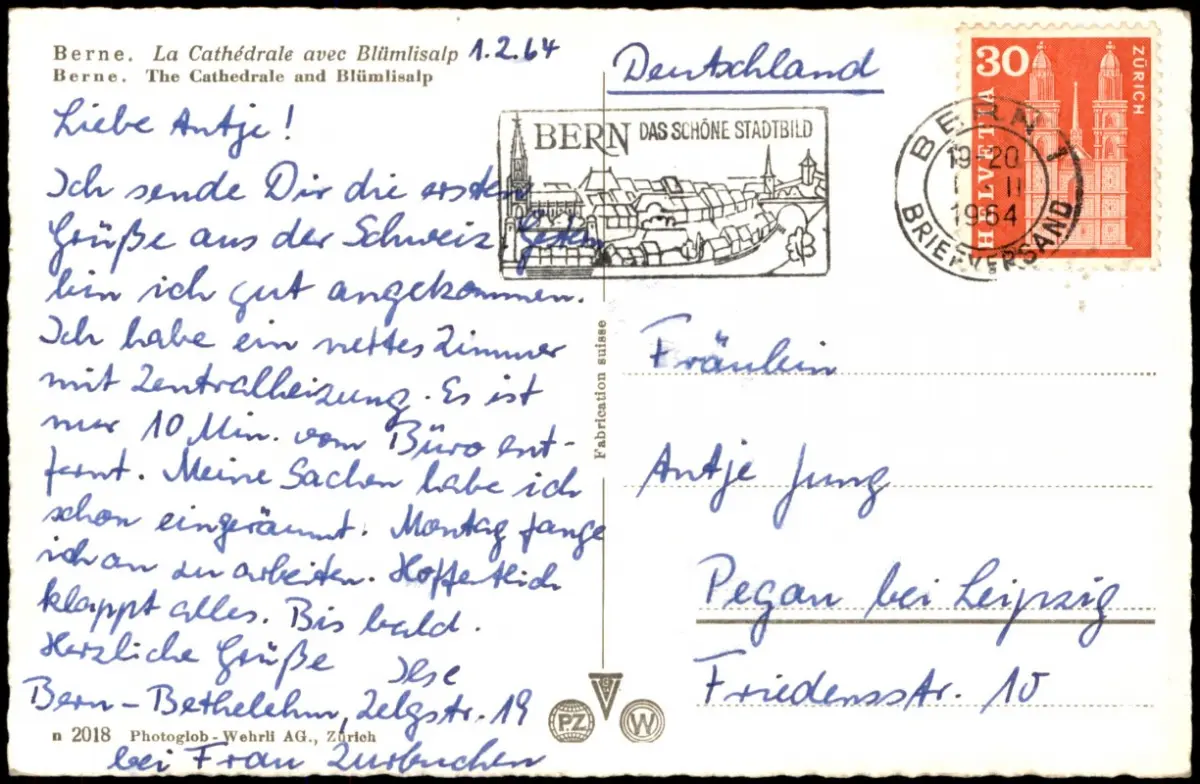 Berne. La Cathédrale avec Blümlisalp 1.2.64
Berne. The Cathedrale and Blümlisalp
Liebe Antje!
Ich sende Dir die ersten
Grüße aus der Schweiz. Gestern
bin ich gut angekommen.
Ich habe ein nettes Zimmer
mit Zentralheizung. Es ist
nur 10 Min. vom Büro ent-
fernt. Meine Sachen habe ich
schon eingeräumt. Montag fange
ich an zu arbeiten. Hoffentlich
klappt alles. Bis bald.
Herzliche Grüße Ilse
Bern-Bethelehm, Zelgstr. 19
bei Frau Zurbuchen
n 2018 Photoglob-Wehrli AG., Zürich
Fabrication suisse
PZ
W
Deutschland
BERN DAS SCHÖNE STADTBILD
BERN 1
19-20
1964
BRIEFVERSAND
30
HELVETIA
ZÜRICH
Fräulein
Antje Jung
Pegau bei Leipzig
Friedensstr. 10